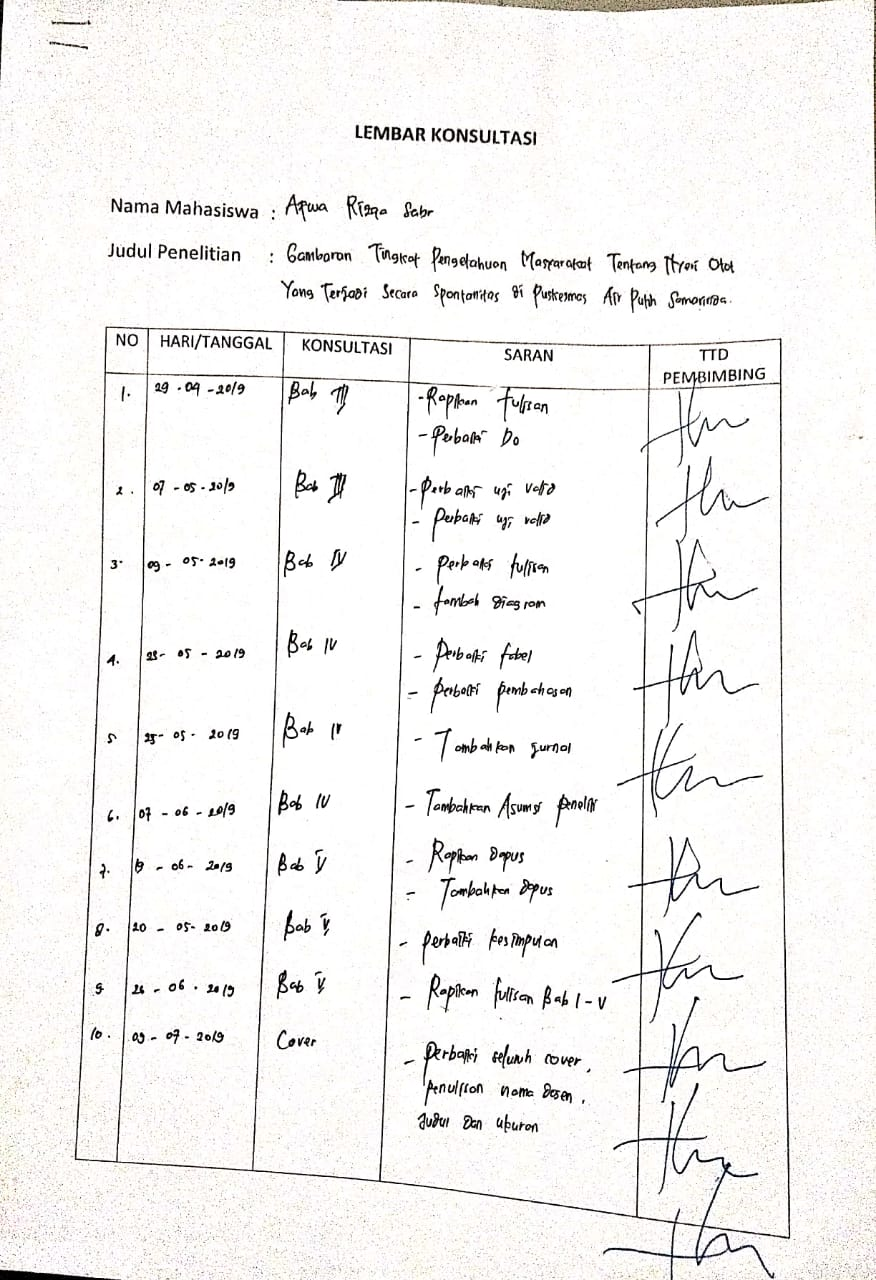 LEMBAR KONSULTASI
Nama Mahasiswa : Aqwa Rizqa Sabr
Judul Penelitian : Gambaran Tingkat Pengetahuan Masyarakat Tentang Nyeri Otot
Yang Terjadi Secara Spontanitas di Puskesmas Air Putih Samarinda.
NO HARI/TANGGAL KONSULTASI SARAN TTD PEMBIMBING
1. 29-04-2019 Bab III - Rapikan tulisan
- Perbaiki Do
2. 07-05-2019 Bab III - Perbaiki uji valid
- Perbaiki uji valid
3. 09-05-2019 Bab IV - Perbaiki tulisan
- tambah diagram
4. 23-05-2019 Bab IV - Perbaiki tabel
- perbaiki pembahasan
5 25-05-2019 Bab IV - Tambahkan jurnal
6. 07-06-2019 Bab IV - Tambahkan Asumsi peneliti
7. -06-2019 Bab V - Rapikan dapus
- Tambahkan dapus
8. 20-05-2019 Bab V - perbaiki kesimpulan
9 26-06-2019 Bab V - Rapikan tulisan Bab I-V
10. 09-07-2019 Cover - perbaiki seluruh cover,
penulisan nama dosen,
judul dan ukuran